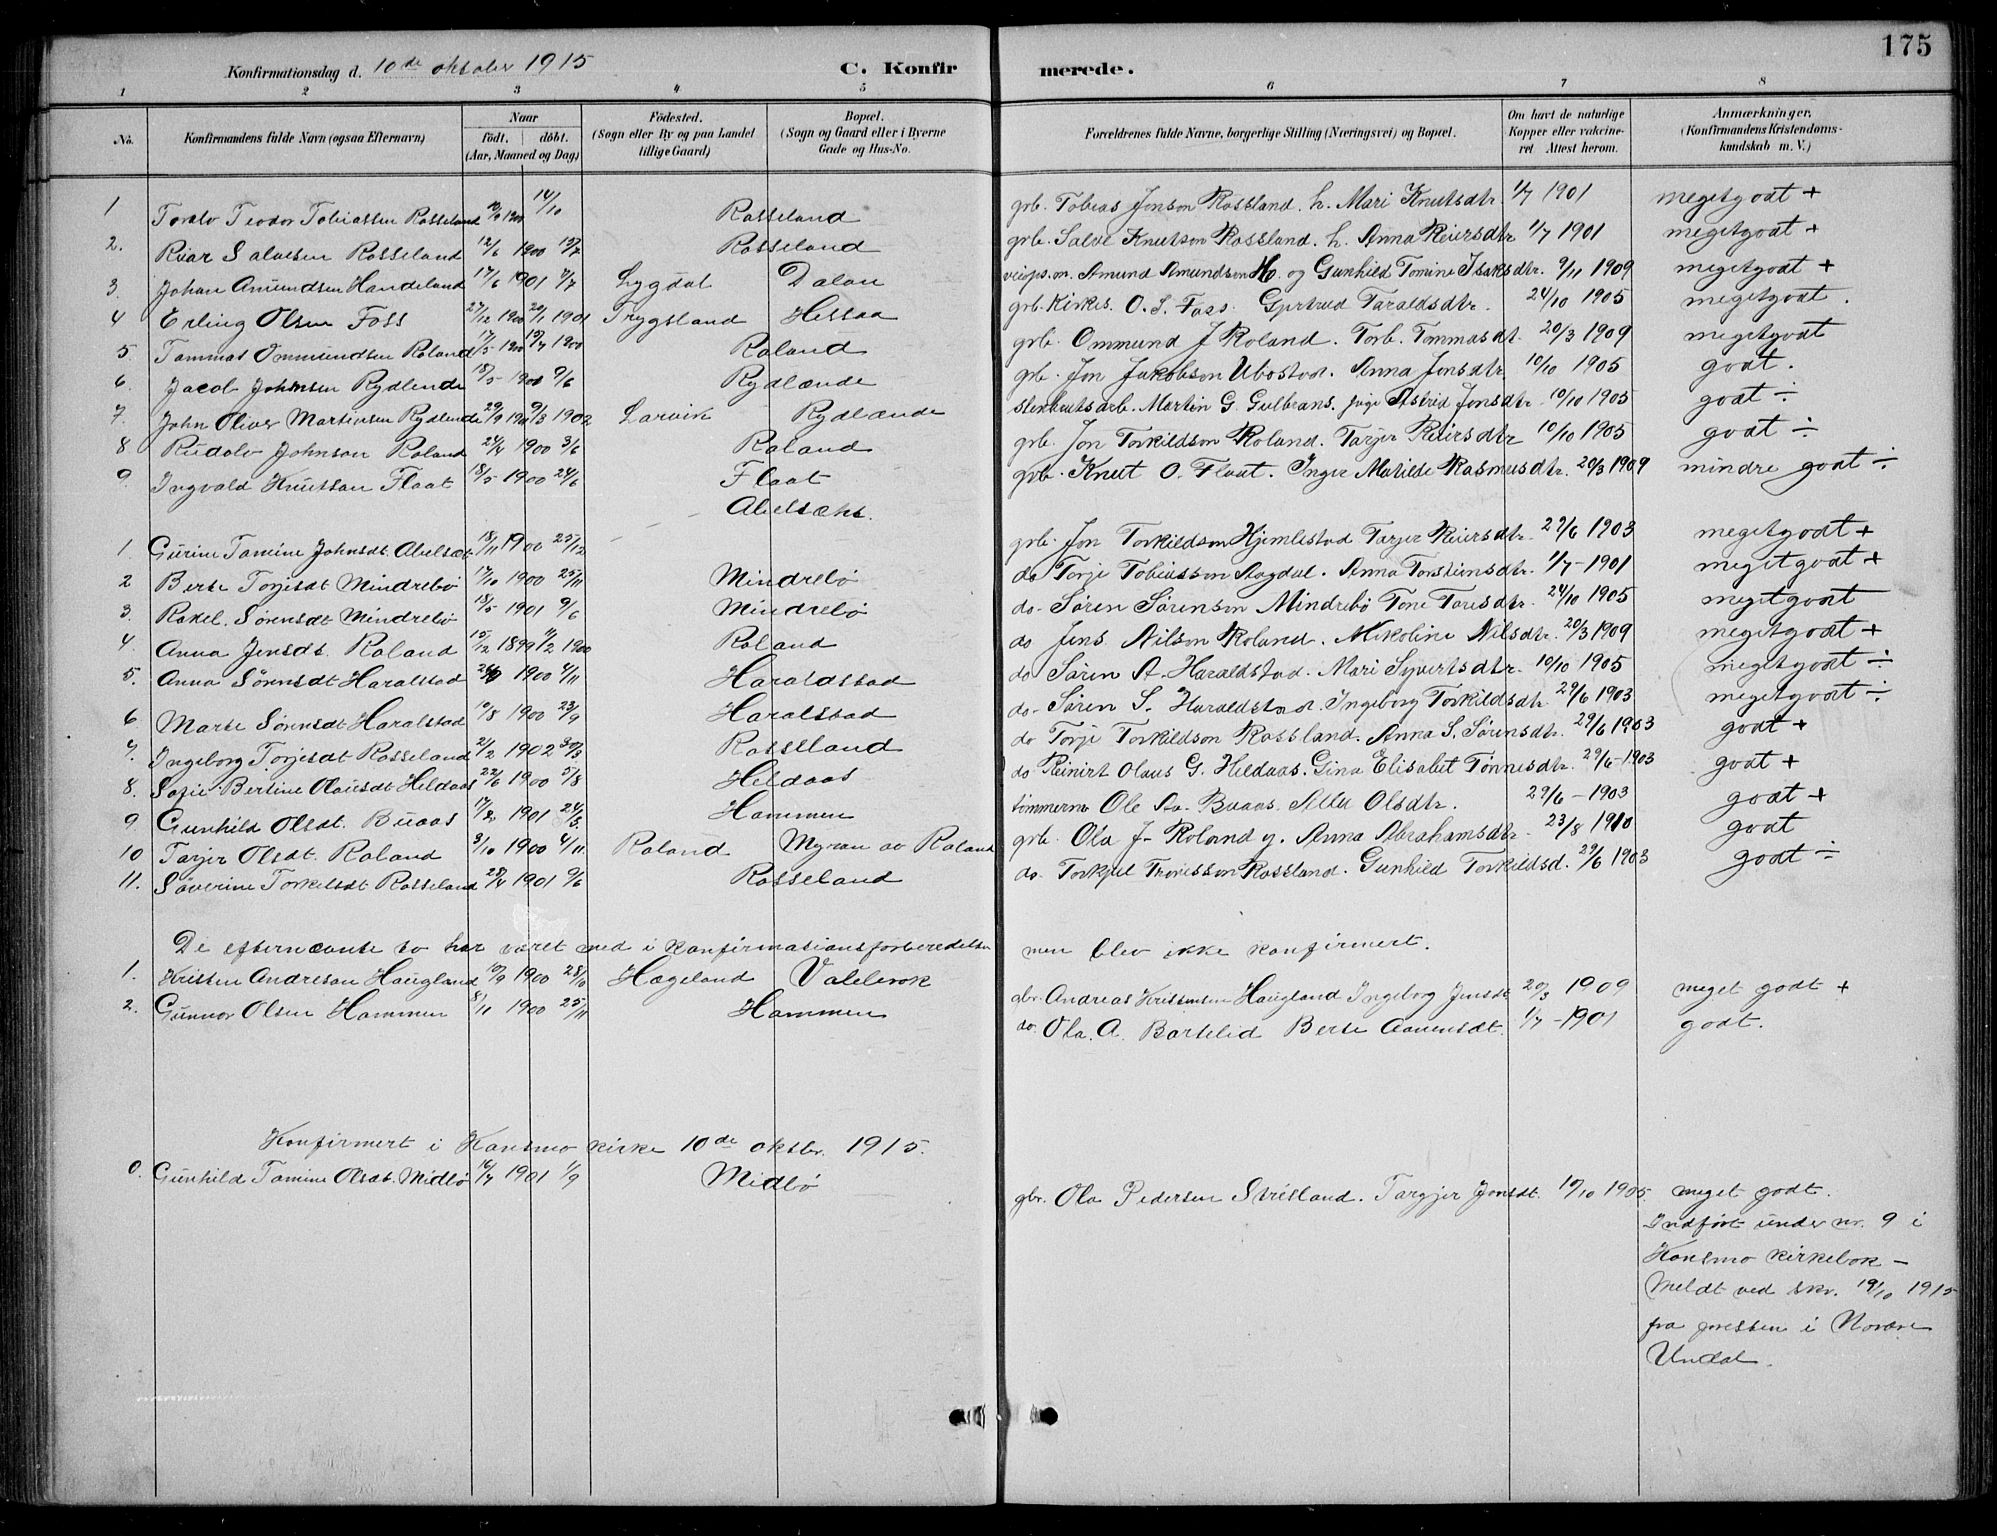 175
Konfirmationsdag d. 10de oktober 1915 C. Konfirmerede.
1 2 3 4 5 6 7 8
No. Konfirmandens fulde Navn (ogsaa Efternavn) Naar født. døbt. (Aar, Maaned og Dag) Fødested. (Sogn eller By og paa Landet tillige Gaard) Bopæl. (Sogn og Gaard eller i Byerne Gade og Hus-No. Forældrenes fulde Navne, borgerlige Stilling (Næringsvei) og Bopæl. Om havt de naturlige Kopper eller vakcineret. Attest herom. Anmærkninger. (Konfirmandens Kristendomskundskab m. V.)
1 Toralv Teodor Tobiassen Rosseland 14/10 Rosseland grb. Tobias Jonson Rossland. h. Mari Knutsdtr. 1/7 1901 megetgodt +
2. Rvar Salvesen Rosseland 12/6 1900 15/7 Rosseland grb. Salve Knutson Rossland. h. Anna Reiersdtr 1/7 1901 megetgodt +
3. Johan Amundsen Handeland 17/6 1901 7/7 Lygdal Dalan veiops.on. Amund Amundson H. og Gunhild Tomine Isaksdtr. 9/11 1909 megetgodt +
4 Erling Olsen Foss 27/12 1900 20/1 1901 Trygsland Hessaa grb. Kirkes. O. S. Foss. Gjertrud Taraldsdtr. 24/10 1905 megetgodt.
5. Tommas Ommundsen Roland 17/5 1900 15/7 1900 Roland grb. Ommund J Roland. Torb. Tommasdt. 20/3 1909 megetgodt
6. Jacob Johnsen Rydlende 18/5 1900 9/6 Rydlænde grb. Jon Jakobson Ubostad. Anna Jonsdtr. 10/10 1905 godt.
7. John Oliver Martinsen Rydlende 29/9 1901 9/3 1902 Larvik Rydlænde stenhutsarb. Martin G. Gulbrans. pige Astrid Jonsdtr. 10/10 1905 godt ÷
8 Rudolv Johnson Roland 24/4 1900 3/6 Roland grb. Jon Torkildson Roland. Tarjer Reiersdtr 10/10 1905 godt ÷
9. Ingvald Knutson Flaat 18/5 1900 24/6 Flaat grb. Knut O. Flaat. Inger Matilde Rasmusdtr. 20/3 1909 mindre godt ÷
1. Gurine Tomine Johnsdt. Abelsæt 18/11 1900 25/12 Abelsæht. grb. Jon Torkildson Hjemlestad Tarjer Reiersdtr. 29/6 1903 megetgodt +
2 Berte Torjesdt Mindrebö 17/10 1900 25/11 Mindrebö do Torje Tobiasson Aagdal. Anna Torsteinsdtr. 1/7 - 1901 megetgodt +
3. Rakel. Sörensdt Mindrebö 18/5 1901 9/6 Mindrebö do. Søren Sørenson Mindrebö Tone Toresdtr. 24/10 1905 megetgodt
4. Anna Jensdt. Roland 15/12 1899 11/2 1900 Roland do Jens Nilson Roland. Nikoline Nilsdtr. 20/3 1909 megetgodt +
5. Anna Sörensdt Haralstad 1900 4/11 Haraldstad do Søren A. Haraldstad. Mari Syvertsdtr. 10/10 1905 megetgodt ÷
6 Marte Sörensdt Haralstad 10/8 1900 23/9 Haralstad do. Søren S. Haraldstad. Ingeborg Torkildsdtr 29/6 1903 megetgodt ÷
7. Ingeborg Torjesdt Rosseland 2/2 1902 30/3 Rosseland do Torje Torkildson Rossland. Anna S. Sörensdtr. 29/6 1903 godt +
8. Sofie Bertine Olausdt Heldaas 22/6 1900 5/8 Heldaas do Reinirt Olaus G. Heldaas. Gina Elisabet Tønnesdtr. 29/6 - 1903 godt +
9 Gunhild Olsdt. Buaas 1901 24/3. Hommen tömmerm. Ole Aa. Buaas. Olsdtr. 29/6 - 1903 godt +
10 Tarjer Olsdt. Roland 3/10 1900 4/11 Roland Myran av Roland grb. Ola J. Roland y. Anna Abrahamsdtr. 23/8 1910 godt
11. Söverine Torkelsdt Rosseland 28/4 1901 9/6 Rosseland do. Torkjel Rossland. Gunhild Torkildsd. 29/6 1903 godt ÷
De efternævnte to har været med i konfirmationsforberedelsen men blev ikke konfirmert.
1. Kristen Andreson Haugland 10/9 1900 28/10 Hægeland Vallevok gbr. Andreas Kristensen Haugland Ingeborg Jensdt. 20/3 1909 meget godt +
2. Gunvor Olsen Hommen 8/10 1900 25/11 Hommen do. Ola. A. Bortelid Berte Aanensdt. 1/7 - 1901 godt.
Konfirmert i Konsmo kirke 10de oktbr. 1915.
0. Gunhild Tomine Olsdt. Midbö 16/7 1901 1/9 Midbö gbr. Ola Pedersen Strisland. Targjer Jonsdt. 10/10 1905 meget godt.
Indført under nr. 9 i
Konsmo kirkebok –
Meldt ved skr. 19/10 1915
fra presten i Nordre
Undal.